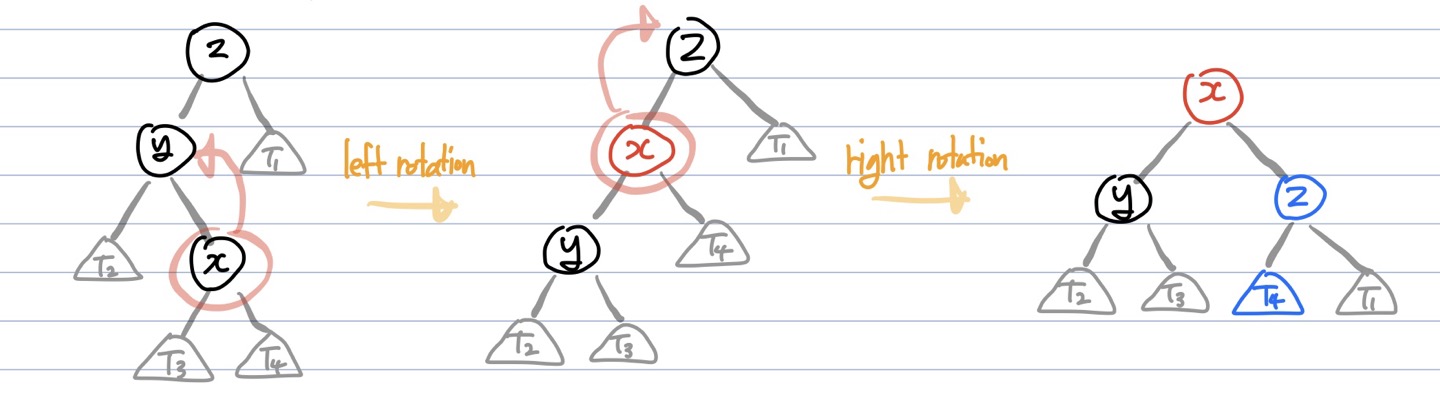 z
y
T1
T2
x
T3
T4
left rotation
z
x
T1
y
T4
T2
T3
right rotation
x
y
z
T2
T3
T4
T1